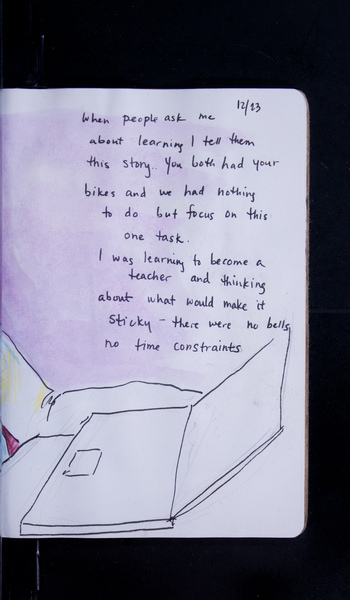 12/13
When people ask me
about learning I tell them
this story. You both had your
bikes and we had nothing
to do but focus on this
one task.
I was learning to become a
teacher and thinking
about what would make it
sticky - there were no bells,
no time constraints